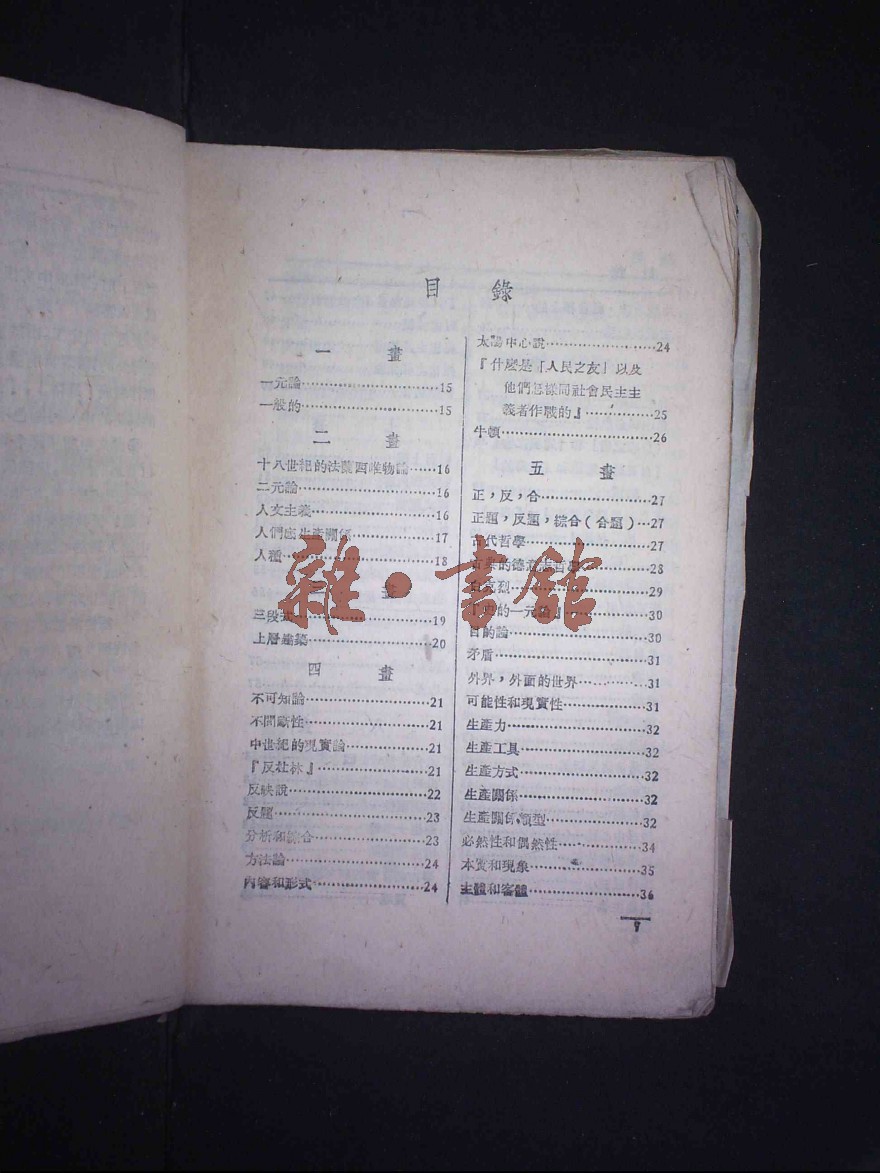 目錄
一畫
一元論……15
一般的……15
二畫
十八世紀的法蘭西唯物論……16
二元論……16
人文主義……16
人們底生產關係……17
人種……18
畫
三段……19
上層建築……20
四畫
不可知論……21
不間斷性……21
中世紀的現實論……21
『反杜林』……21
反映說……22
反題……23
分析和綜合……23
方法論……24
內容和形式……24
太陽中心說……24
『什麼是「人民之友」以及
他們怎樣同社會民主主
義者作戰的』……25
牛頓……26
五畫
正，反，合……27
正題，反題，綜合（合題）…27
古代哲學……27
的德意志哲學……28
烈……29
的一元論』……30
目的論……30
矛盾……31
外界，外面的世界……31
可能性和現實性……31
生產力……32
生產工具……32
生產方式……32
生產關係……32
生產關係類型……32
必然性和偶然性……34
本質和現象……35
主體和客體……36
7
雜·書館